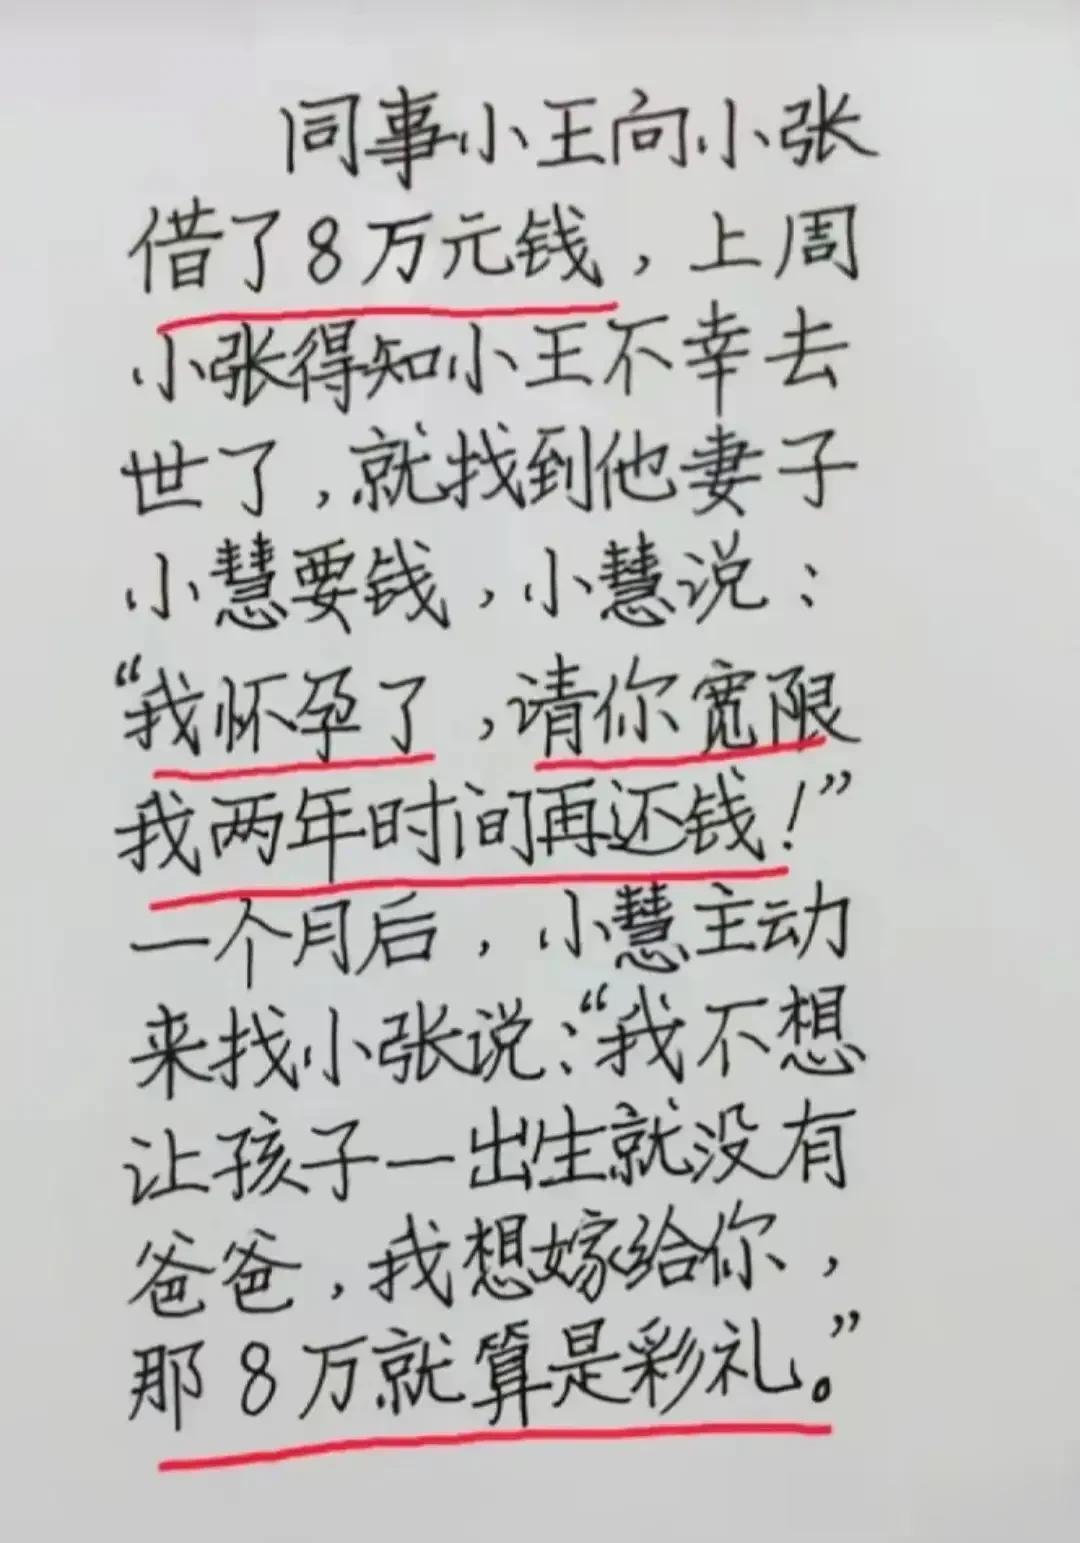 同事小王向小张
借了8万元钱，上周
小张得知小王不幸去
世了，就找到他妻子
小慧要钱，小慧说：
“我怀孕了，请你宽限
我两年时间再还钱！”
一个月后，小慧主动
来找小张说：“我不想
让孩子一出生就没有
爸爸，我想嫁给你，
那8万就算是彩礼。”